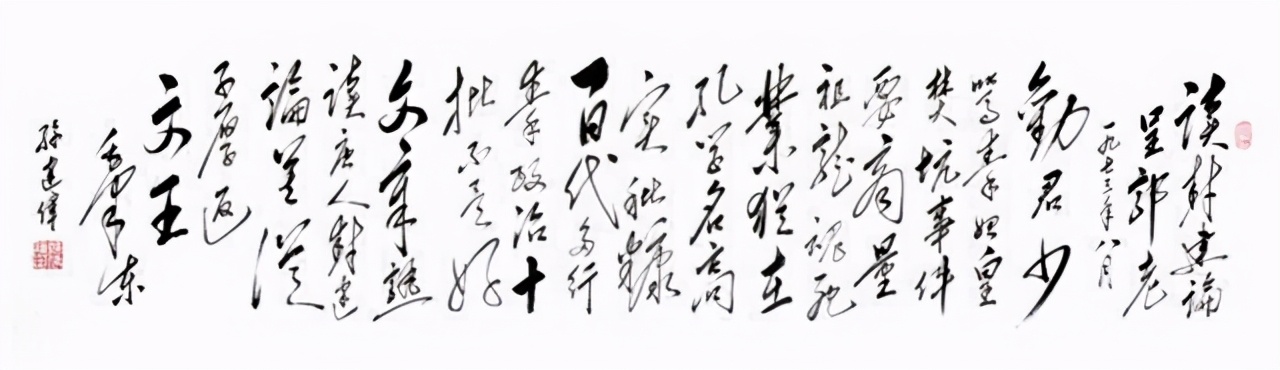 讀封建論
呈郭老
一九七三年八月
勸君少
罵秦始皇
焚坑事件
要商量
祖龍魂死
業猶在
孔學名高
實秕糠
百代多行
秦政治十
批不是好
文章熟
讀唐人封建
論莫從
子厚返
文王
毛澤東
孫建偉